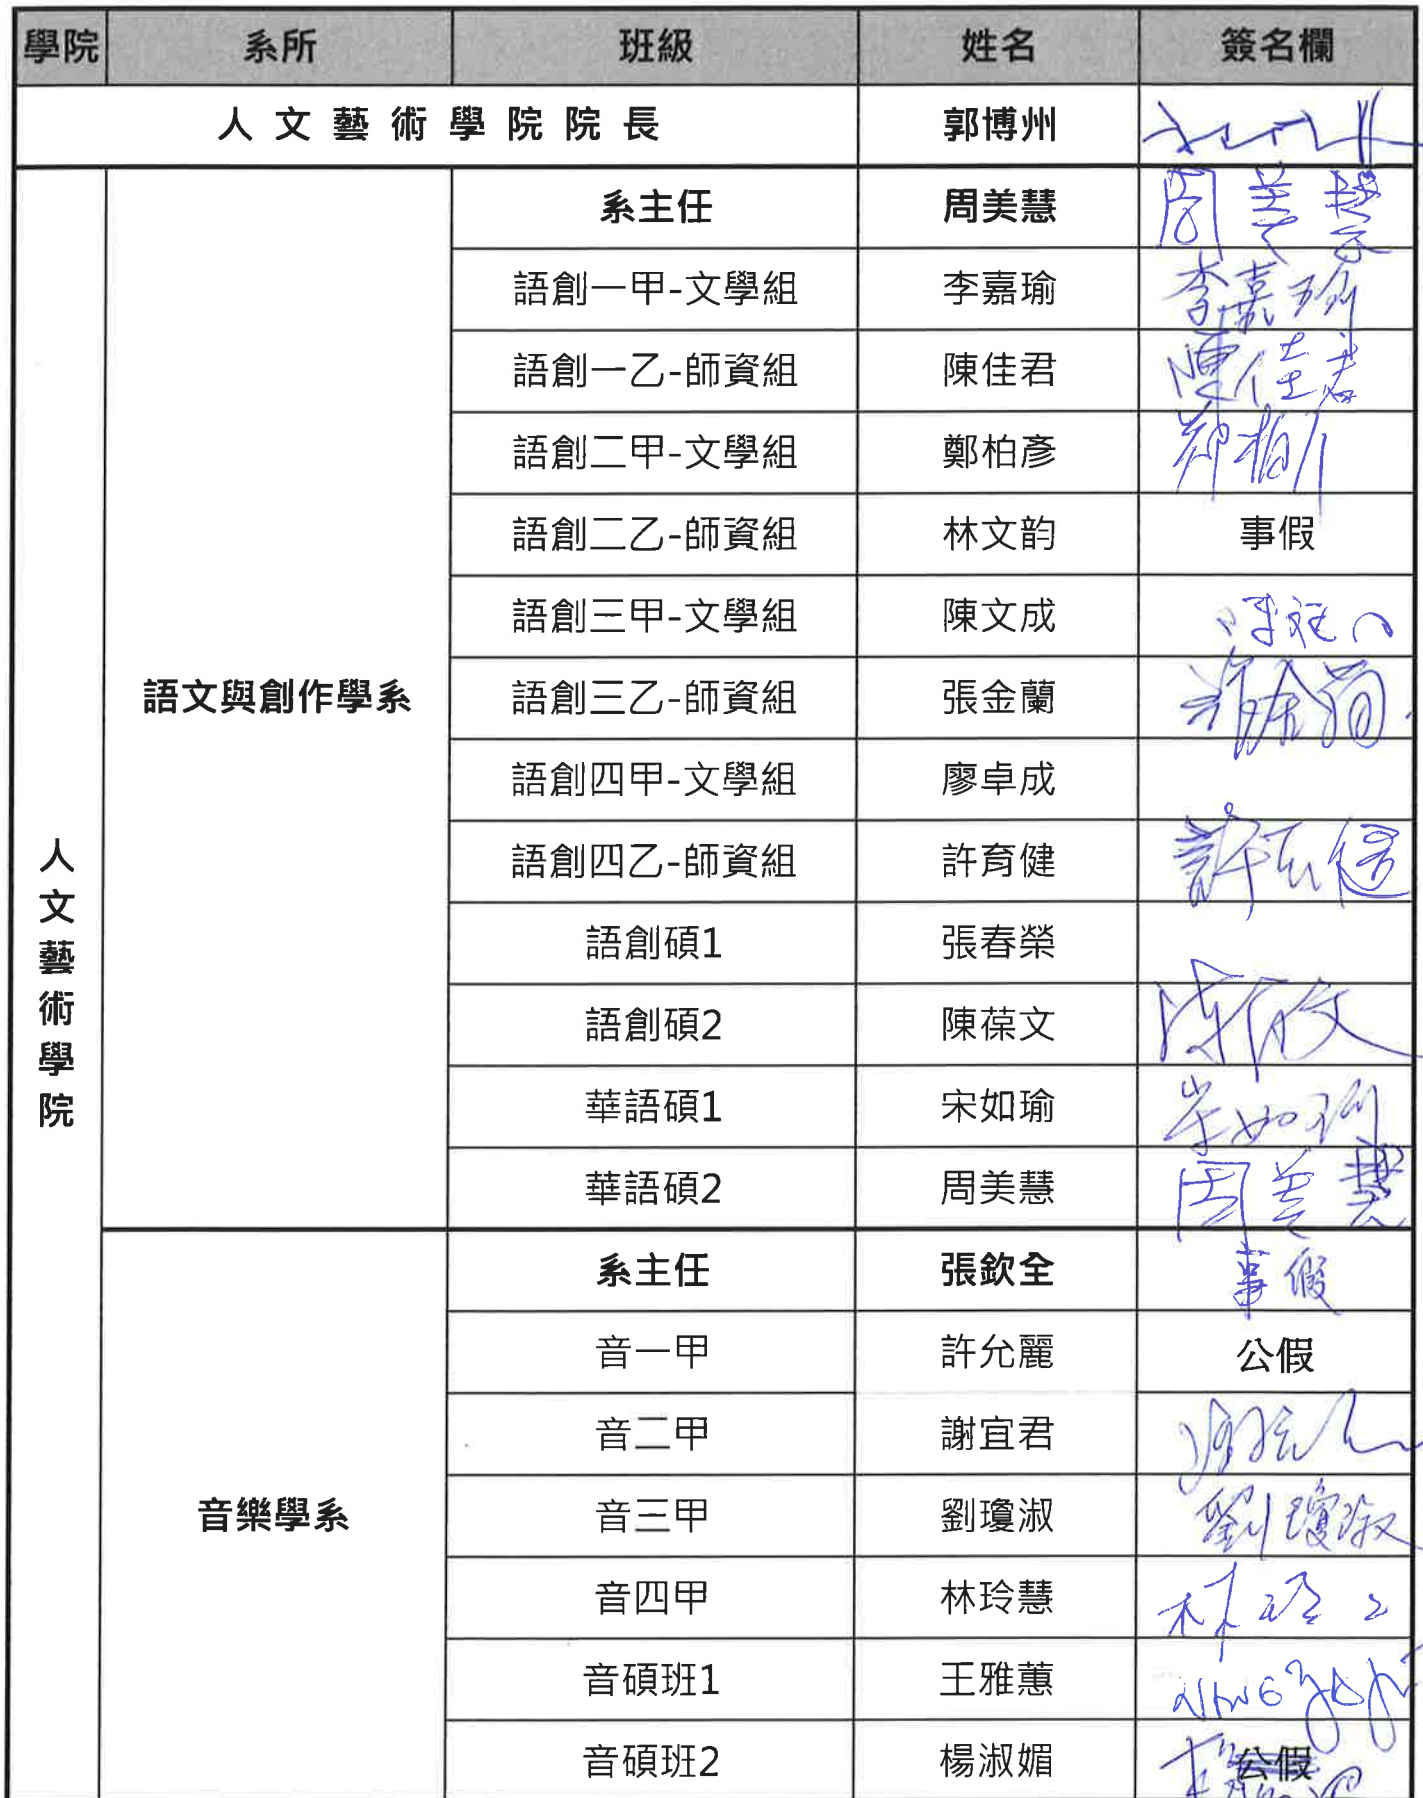 學院 系所 班級 姓名 簽名欄
人文藝術學院院長 郭博州
人文藝術學院
語文與創作學系
系主任 周美慧 周美慧
語創一甲-文學組 李嘉瑜 李嘉瑜
語創一乙-師資組 陳佳君 陳佳君
語創二甲-文學組 鄭柏彥
語創二乙-師資組 林文韵 事假
語創三甲-文學組 陳文成
語創三乙-師資組 張金蘭
語創四甲-文學組 廖卓成
語創四乙-師資組 許育健 許育健
語創碩1 張春榮
語創碩2 陳葆文
華語碩1 宋如瑜 宋如瑜
華語碩2 周美慧 周美慧
音樂學系
系主任 張欽全 事假
音一甲 許允麗 公假
音二甲 謝宜君
音三甲 劉瓊淑 劉瓊淑
音四甲 林玲慧
音碩班1 王雅蕙
音碩班2 楊淑媚 公假